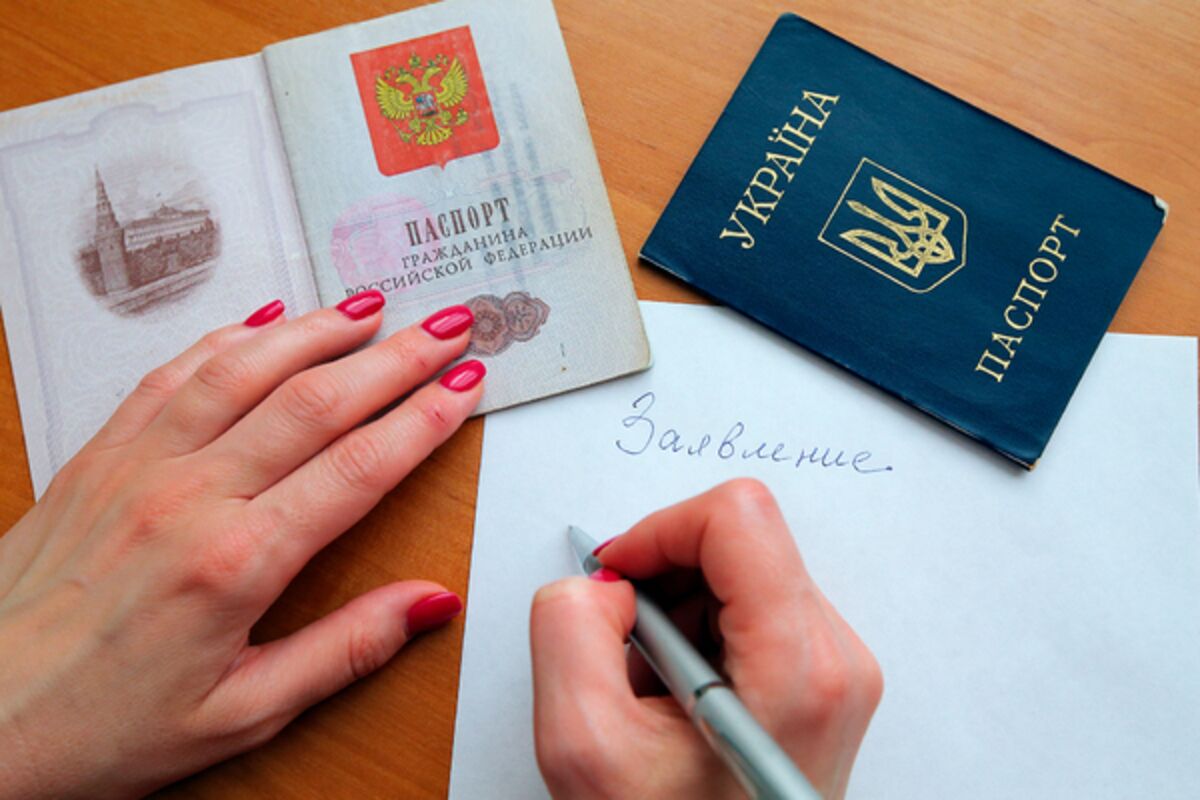 ПАСПОРТ
ГРАЖДАНИНА
РОССИЙСКОЙ ФЕДЕРАЦИИ
УКРАЇНА
ПАСПОРТ
Заявление.